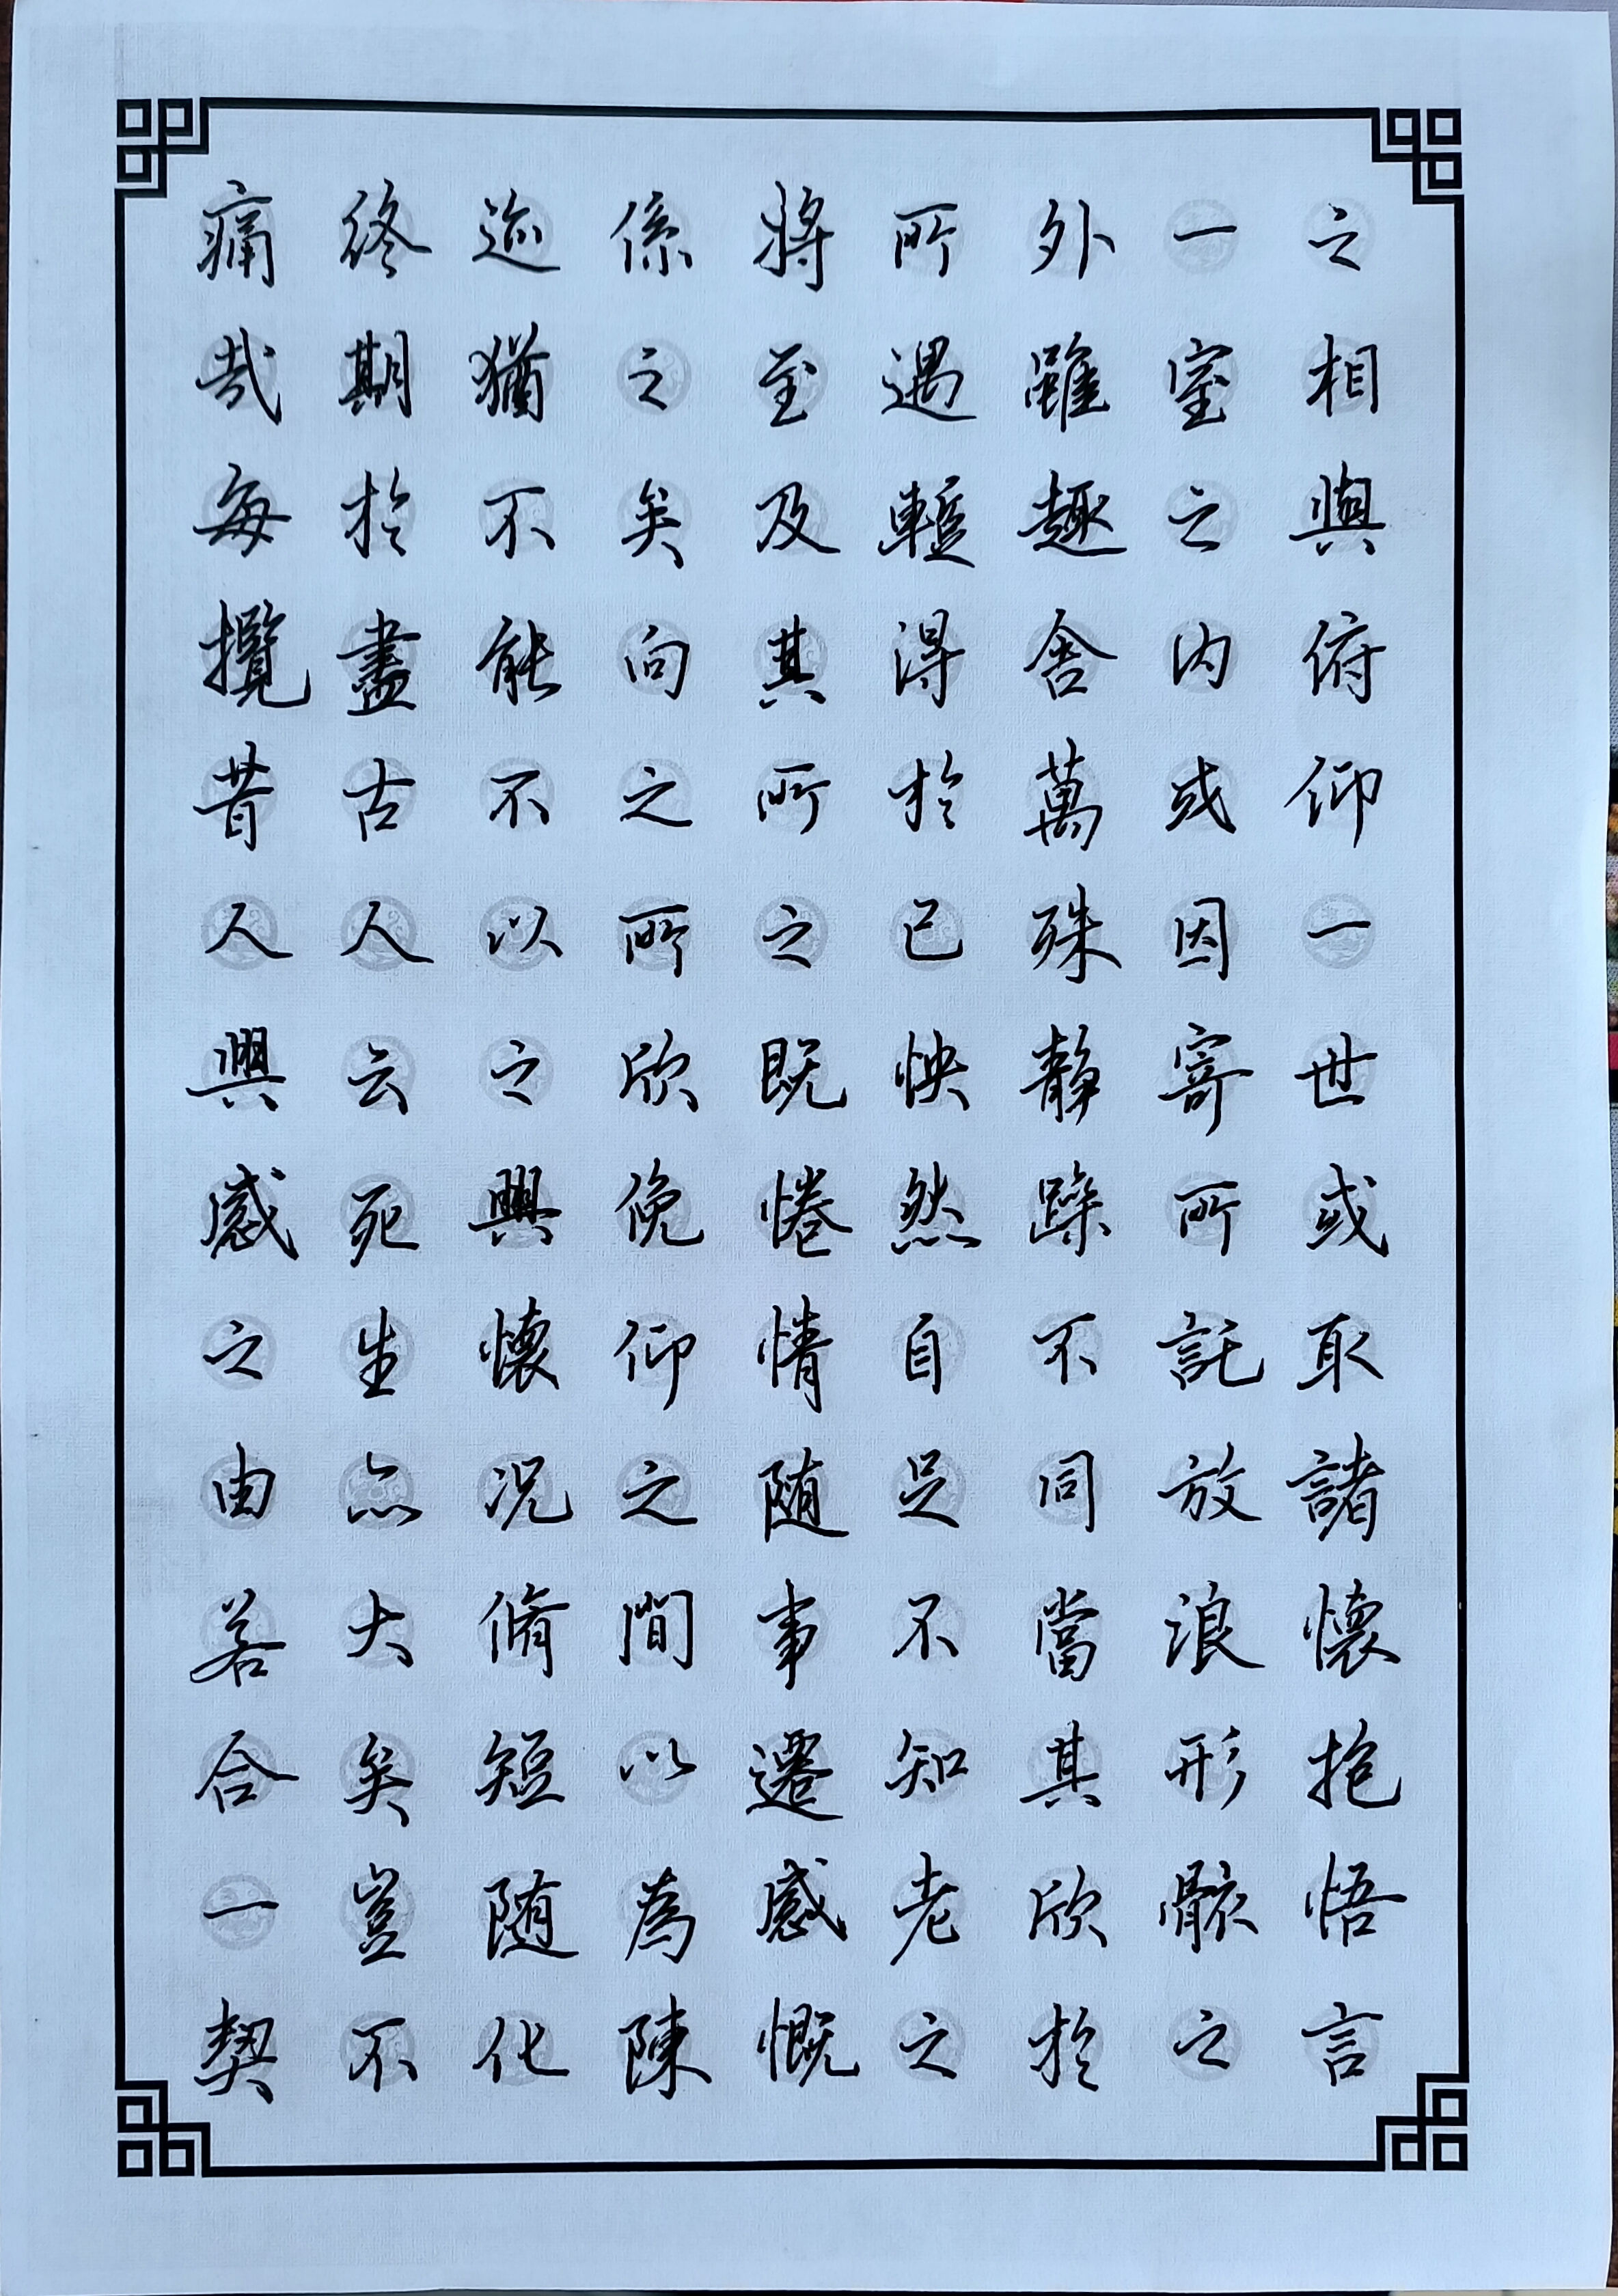 之相與俯仰一世或取諸懷抱悟言
一室之内或因寄所託放浪形骸之
外雖趣舍萬殊静躁不同當其欣於
所遇暫得於己怏然自足不知老之
將至及其所之既惓情随事遷感慨
係之矣向之所欣俛仰之間以為陳
迹猶不能不以之興懷况脩短随化
終期於盡古人云死生亦大矣豈不
痛哉每攬昔人興感之由若合一契